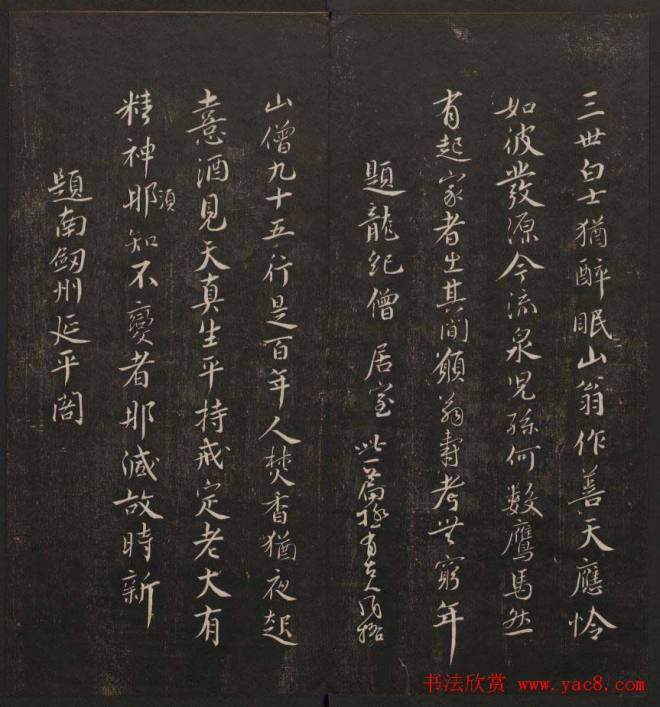 三世白士猶醉眠山翁作善天應怜
如彼發源今流泉兒孫何數鷹馬然
有起家者出其間願翁壽考無窮年
題龍紀僧居室 此一篇極有古人風格
山僧九十五行是百年人焚香猶夜起
憙酒見天真生平持戒定老大有
精神那須知不變者那減故時新
題南劔州延平閣
书法欣赏 www.yac8.com